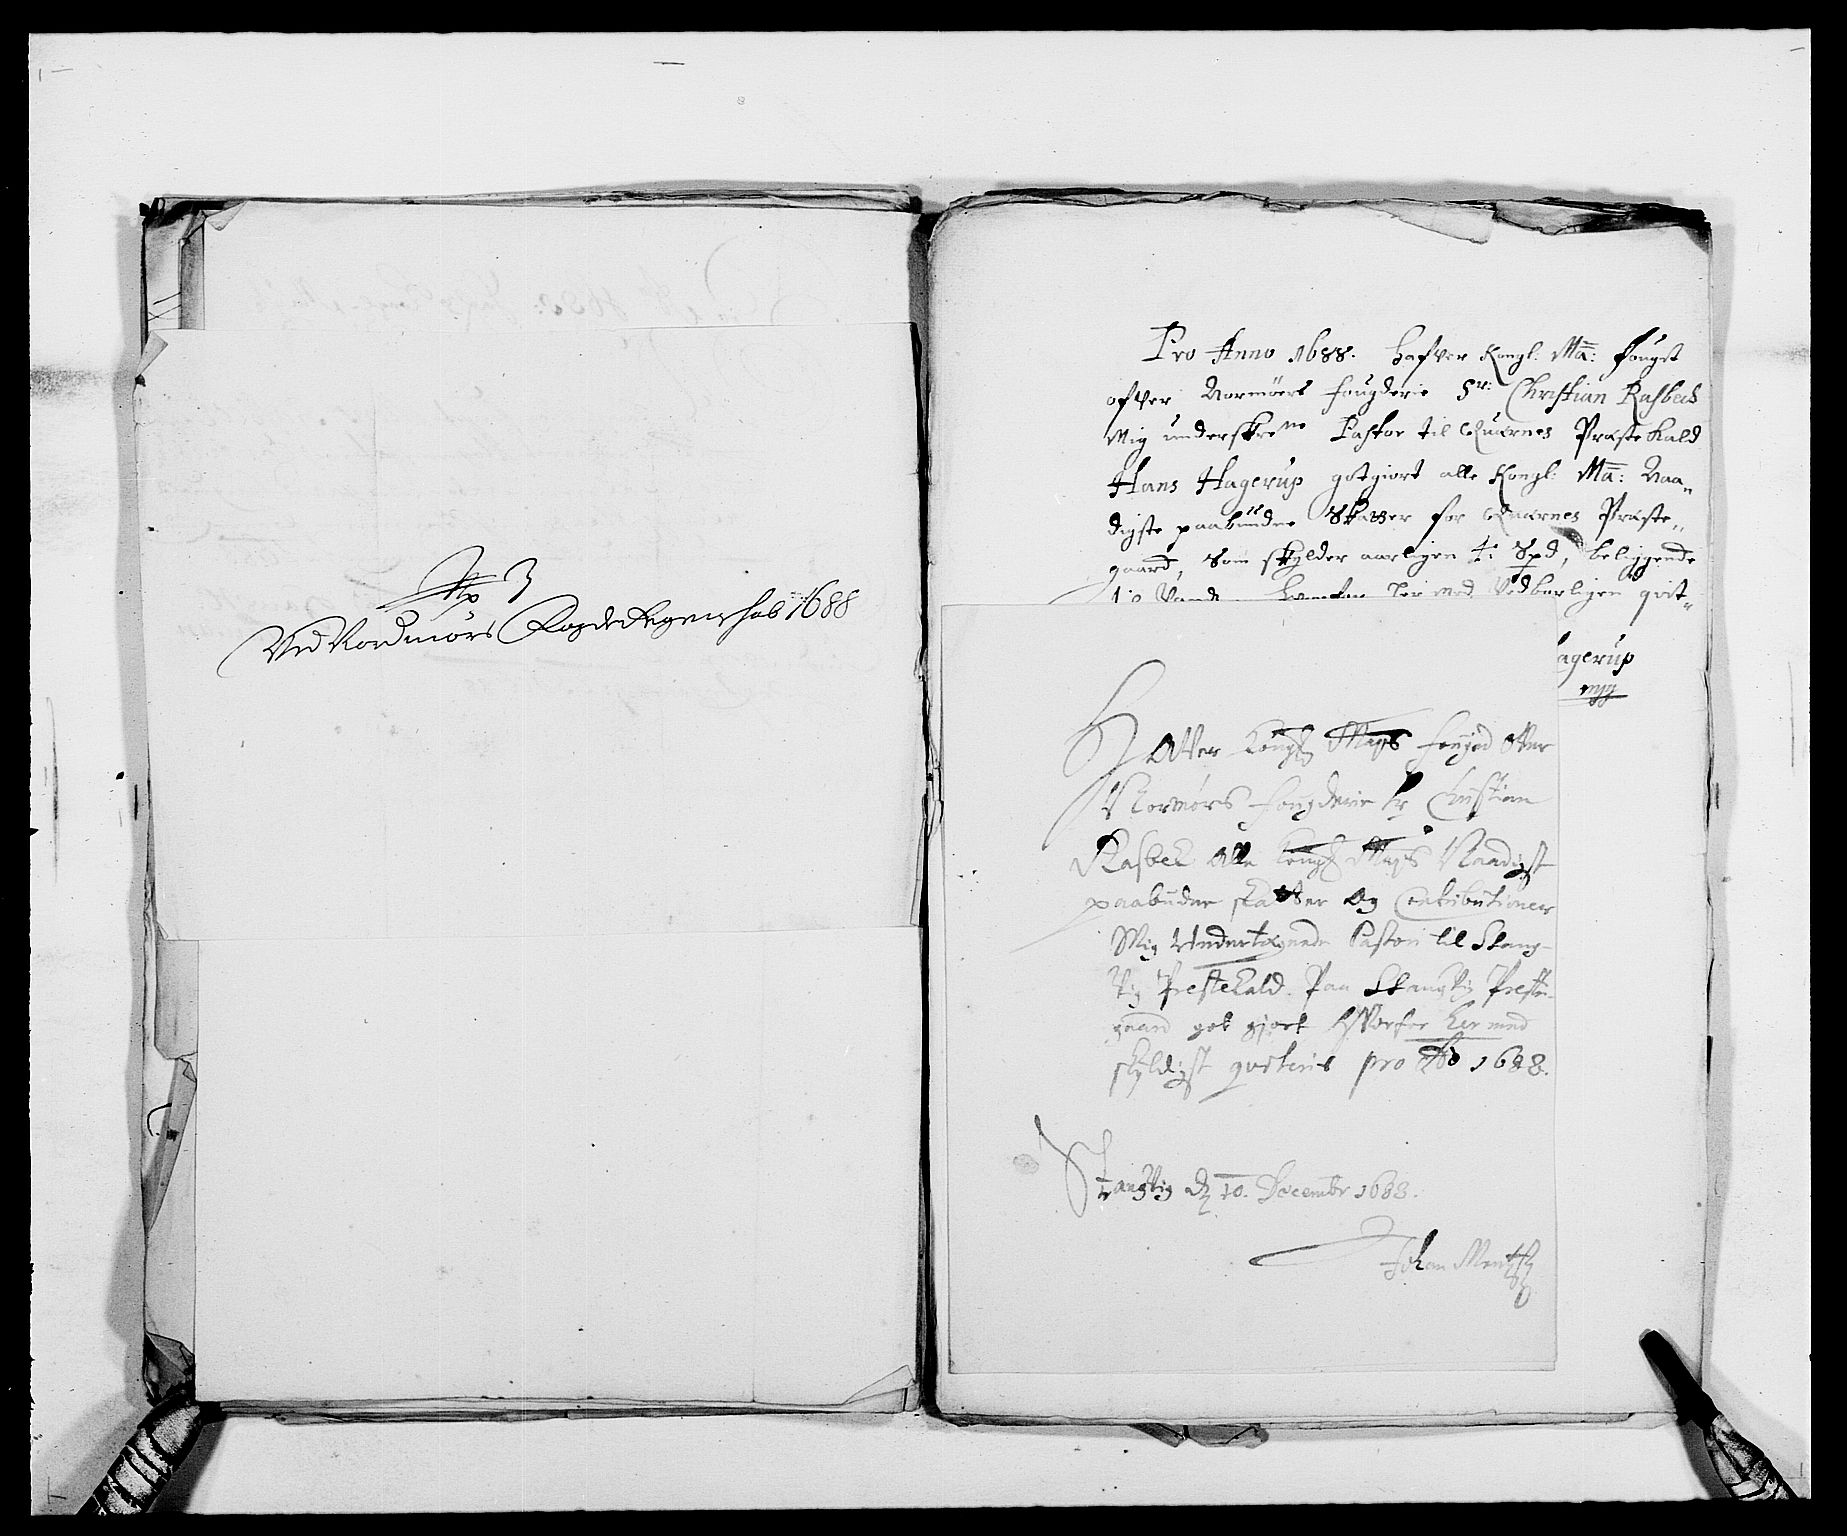 No 3
Ved Nordmørs Fogderegenskab 1688
Pro Anno 1688. Hafver Kongl: Ma: Fougst
ofver Normöers Fougderie Sr: Christian Rasbech
Mig underskrefne Pastor til Quærnes Præste Kald
Hans Hagerup gotgiort alle Kongl: Ma: Naa„
digste paabudne Skatter for Quærnes Præste„
gaard, Som skylder aarligen 4: Spd, beliggende
hermed Vedbørligen qvit„
agerup
mpp
Hafver Kongl Mayts Fouged ofver
Normørs Fougderie Sr Christian
Rasbek Alle Kongl Mayts Naadigst
paabudne skatter Og Contributioner
Mig Undertegnede Pastori til Stang-
vig Prestekald. Paa Stangvig Preste-
gaard got gjort hvorfor hermed
skyldigst qviteris pro Ao 1688.
Stangvig d 10. Decembr 1688.
Johan